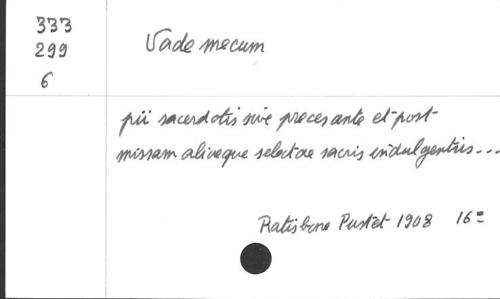 333
299
6
Vade mecum
pii sacerdotis sive preces ante et post
missam aliaeque selectae sacris indulgentiis...
Ratisbone Pustet 1908 16º